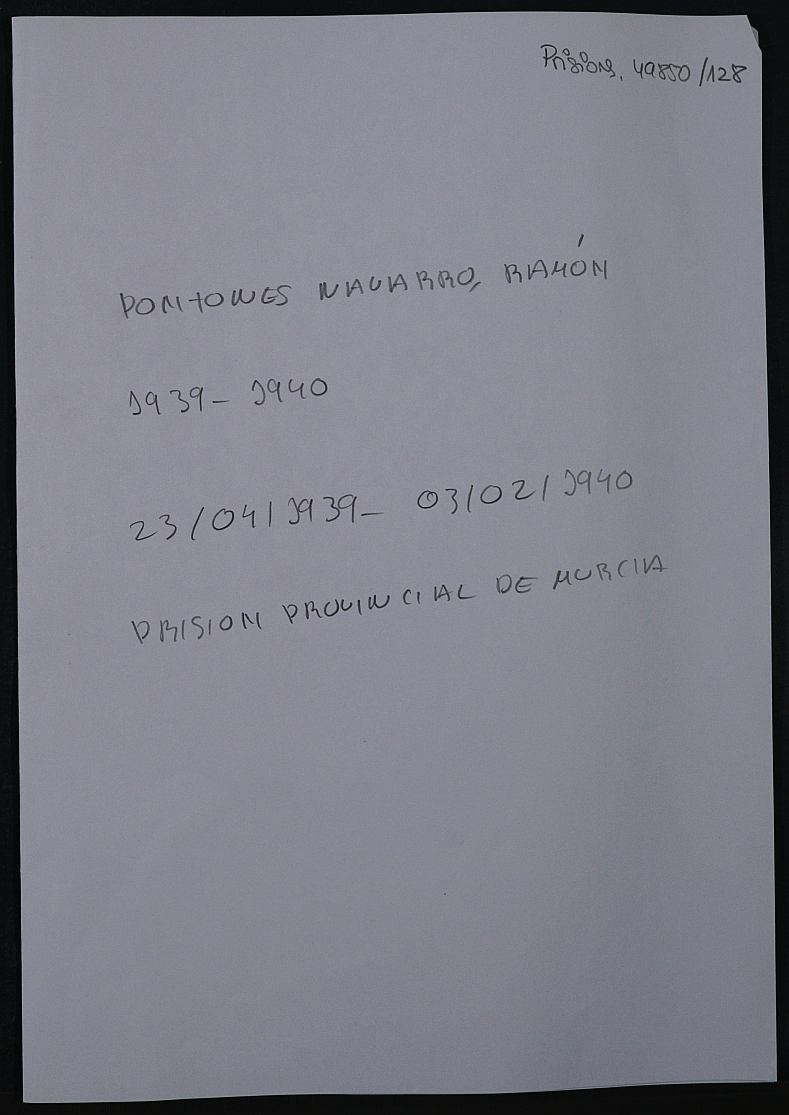 Prisions, 49850/128
PONTONES NAVARRO, RAMÓN
1939- 1940
23/04/1939- 03/02/1940
PRISION PROVINCIAL DE MURCIA